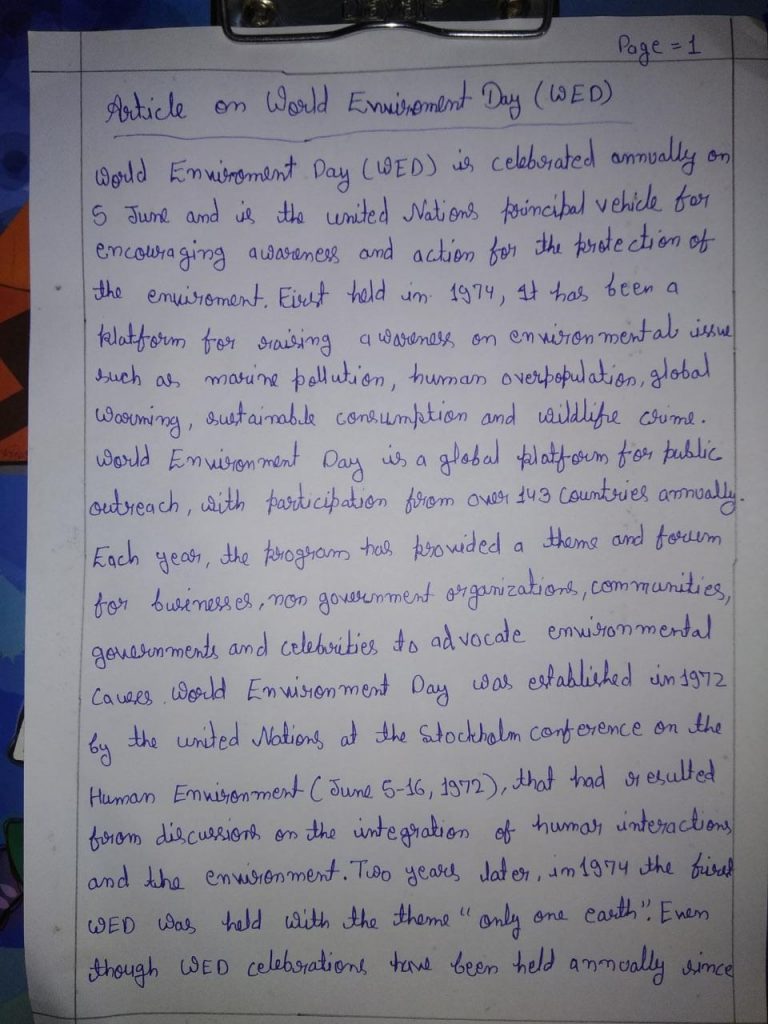 Page = 1
Article on World Enviroment Day (WED)
World Enviroment Day (WED) is celebrated annually on
5 June and is the united Nations principal vehicle for
encouraging awareness and action for the protection of
the enviroment. First held in 1974, It has been a
platform for raising awareness on environmental issue
such as marine pollution, human overpopulation, global
Warming, sustainable consumption and wildlife crime.
World Environment Day is a global platform for public
outreach, with participation from over 143 Countries annually.
Each year, the program has provided a theme and forum
for businesses, non government organizations, communities,
governments and celebrities to advocate environmental
Causes. World Environment Day was established in 1972
by the united Nations at the Stockholm conference on the
Human Environment (June 5-16, 1972), that had resulted
from discussions on the integration of human interactions
and the environment. Two years later, in 1974 the first
WED was held with the theme "only one earth". Even
though WED celebrations have been held annually since